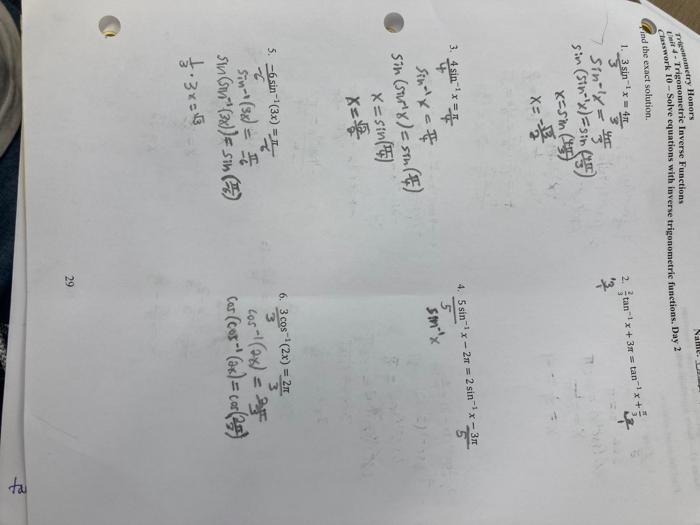 Name:
Trigonometry Honors
Unit 4 - Trigonometric Inverse Functions
Classwork 10 – Solve equations with inverse trigonometric functions. Day 2
Find the exact solution.
1. 3 sin⁻¹ x = 4π
3 3
sin⁻¹x = 4π/3
sin(sin⁻¹x) = sin(4π/3)
x = sin(4π/3)
2. 2/3 tan⁻¹ x + 3π = tan⁻¹ x + π/3
3. 4 sin⁻¹ x = π
4 4
sin⁻¹x = π/4
sin(sin⁻¹x) = sin(π/4)
x = sin(π/4)
4. 5 sin⁻¹ x − 2π = 2 sin⁻¹ x − 3π
5 5
sin⁻¹x
5. −6 sin⁻¹(3x) = π
-6 -6
sin⁻¹(3x) = π/-6
1/3 · 3x = √3
6. 3 cos⁻¹(2x) = 2π
3 3
cos⁻¹(2x) = 2π/3
cos(cos⁻¹(2x) = cos(2π/3)
29